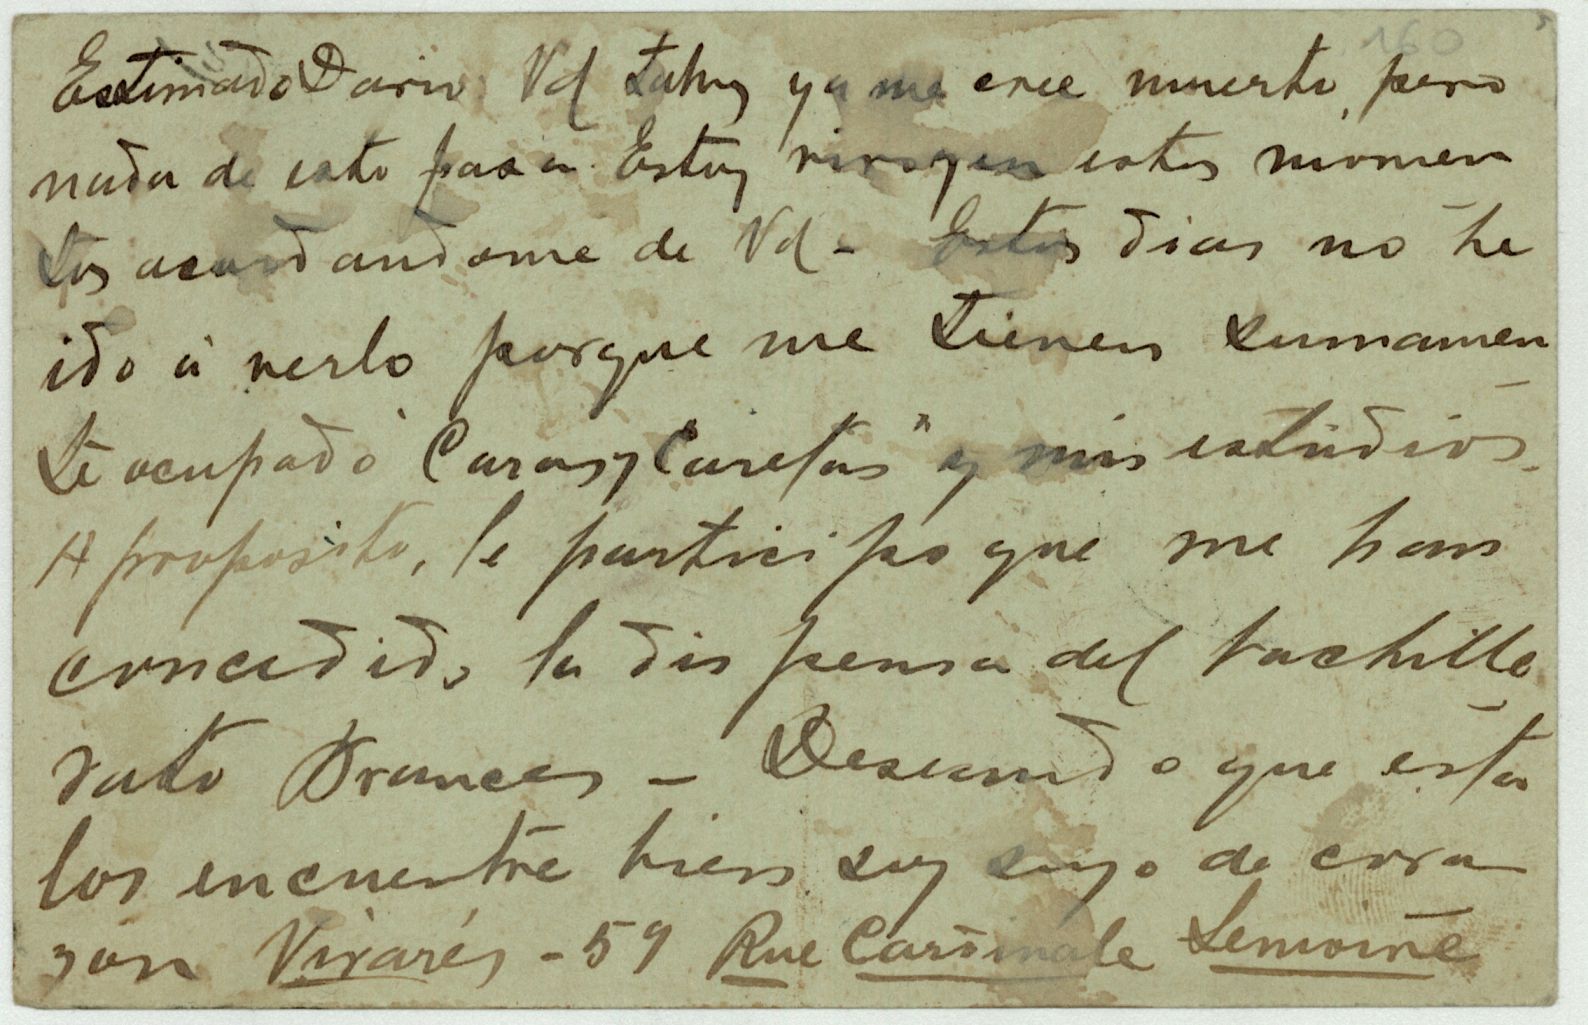 160
Estimado Dario: Vd tal vez ya me cree muerto, pero
nada de esto pasa. Estoy vivo y en estos momen
tos acordandome de Vd - Estos dias no he
ido á verlo porque me tienen sumamen
te ocupado "Caras y Caretas" y mis estudios.
A proposito, le participo que me han
concedido la dispensa del bachille
rato Frances - Deseando que esta
los encuentre bien soy suyo de cora
zon Vivarés - 59 Rue Cardinale Lemoine